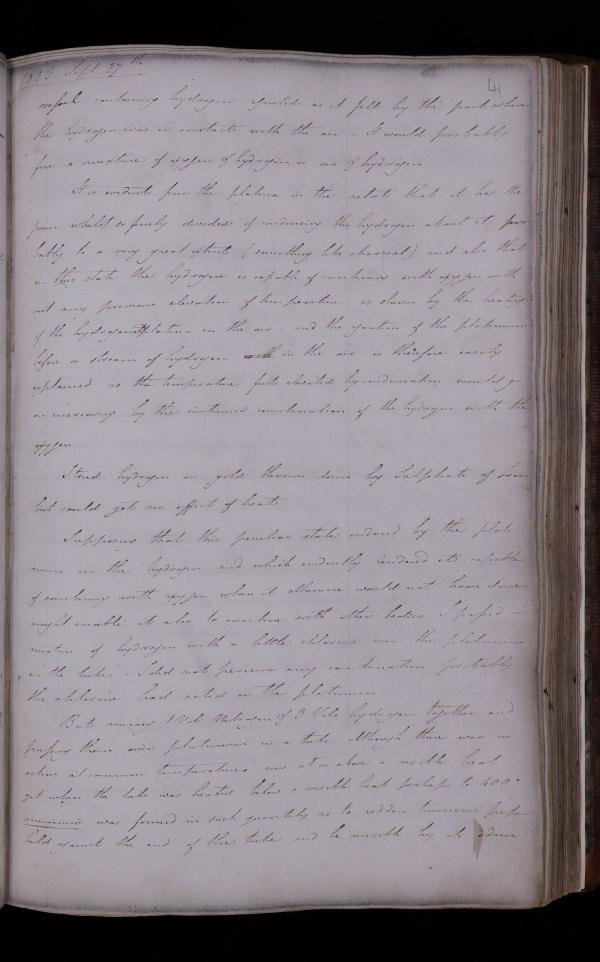 1823. Sept 27th.
41
vessel containing hydrogen ignited as it fell by the part where
the hydrogen was in contact with the air - It would probably
fire a mixture of oxygen & hydrogen or air & hydrogen
It is evident from the platina in the retort that it has the
power whilst so finely divided of condensing the hydrogen about it, pro
bably to a very great extent (something like charcoal) and also that
in this state the hydrogen is capable of combining with oxygen with
out any previous elevation of temperature as shewn by the heating
of the hydrogen platina in the air. and the ignition of the platinum
before a stream of hydrogen in the air is therefore easily
explained as the temperature first elevated by condensation would go
on increasing by the continued combination of the hydrogen with the
oxygen.
I tried hydrogen on gold thrown down by Sulphate of Iron
but could get no effect of heat.
Supposing that this peculiar state induced by the plati
num on the hydrogen and which evidently rendered it capable
of combining with oxygen when it otherwise would not have done
might enable it also to combine with other bodies I passed a
mixture of hydrogen with a little chlorine over the platinum
in the tube. I did not perceive any combination probably
the chlorine had acted on the platinum
But mixing 1 Vol Nitrogen & 3 Vols hydrogen together and
passing them over platinum in a tube Although there was no
action at common temperatures nor at or above a visible heat
yet when the tube was heated below a visible heat perhaps to 400°
ammonia was formed in such quantity as to redden turmeric paper
held against the end of the tube and be sensible by its odour